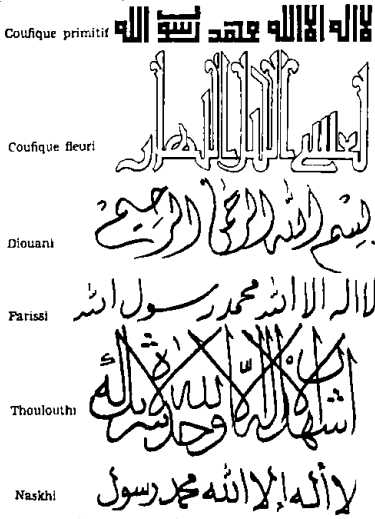 Coufique primitif لا اله الا الله محمد رسول الله
Coufique fleuri
Diouani بسم الله الرحمن الرحيم
Farissi لا اله الا الله محمد رسول الله
Thoulouthi اشهد ان لا اله الا الله وحده لا شريك له
Naskhi لا أله إلا الله محمد رسول